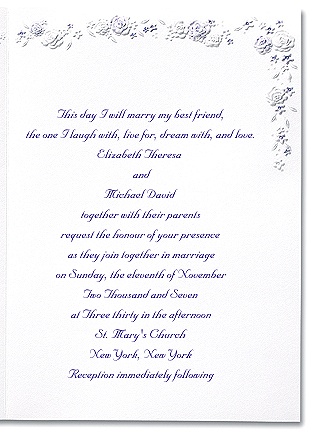 This day I will marry my best friend,
the one I laugh with, live for, dream with, and love.
Elizabeth Theresa
and
Michael David
together with their parents
request the honour of your presence
as they join together in marriage
on Sunday, the eleventh of November
Two Thousand and Seven
at Three thirty in the afternoon
St. Mary's Church
New York, New York
Reception immediately following